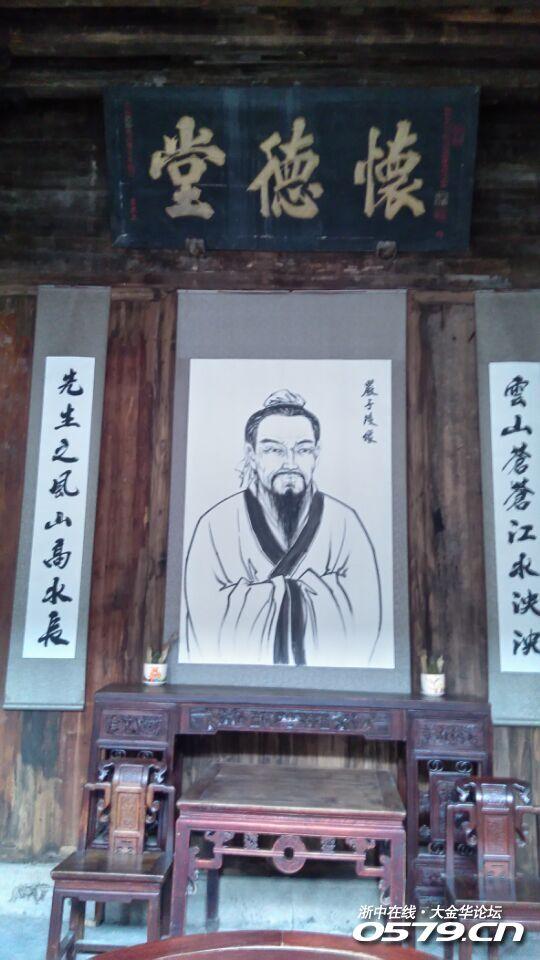 懷德堂
嚴子陵像
雲山蒼蒼江水泱泱
先生之風山高水長
浙中在线·大金华论坛
0579.cn